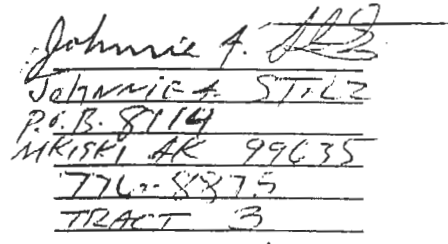 Johnnie A. Stilz
JOHNNIE A. STILZ
P.O.B. 8114
NKISKI AK 99635
776-8875
TRACT 3